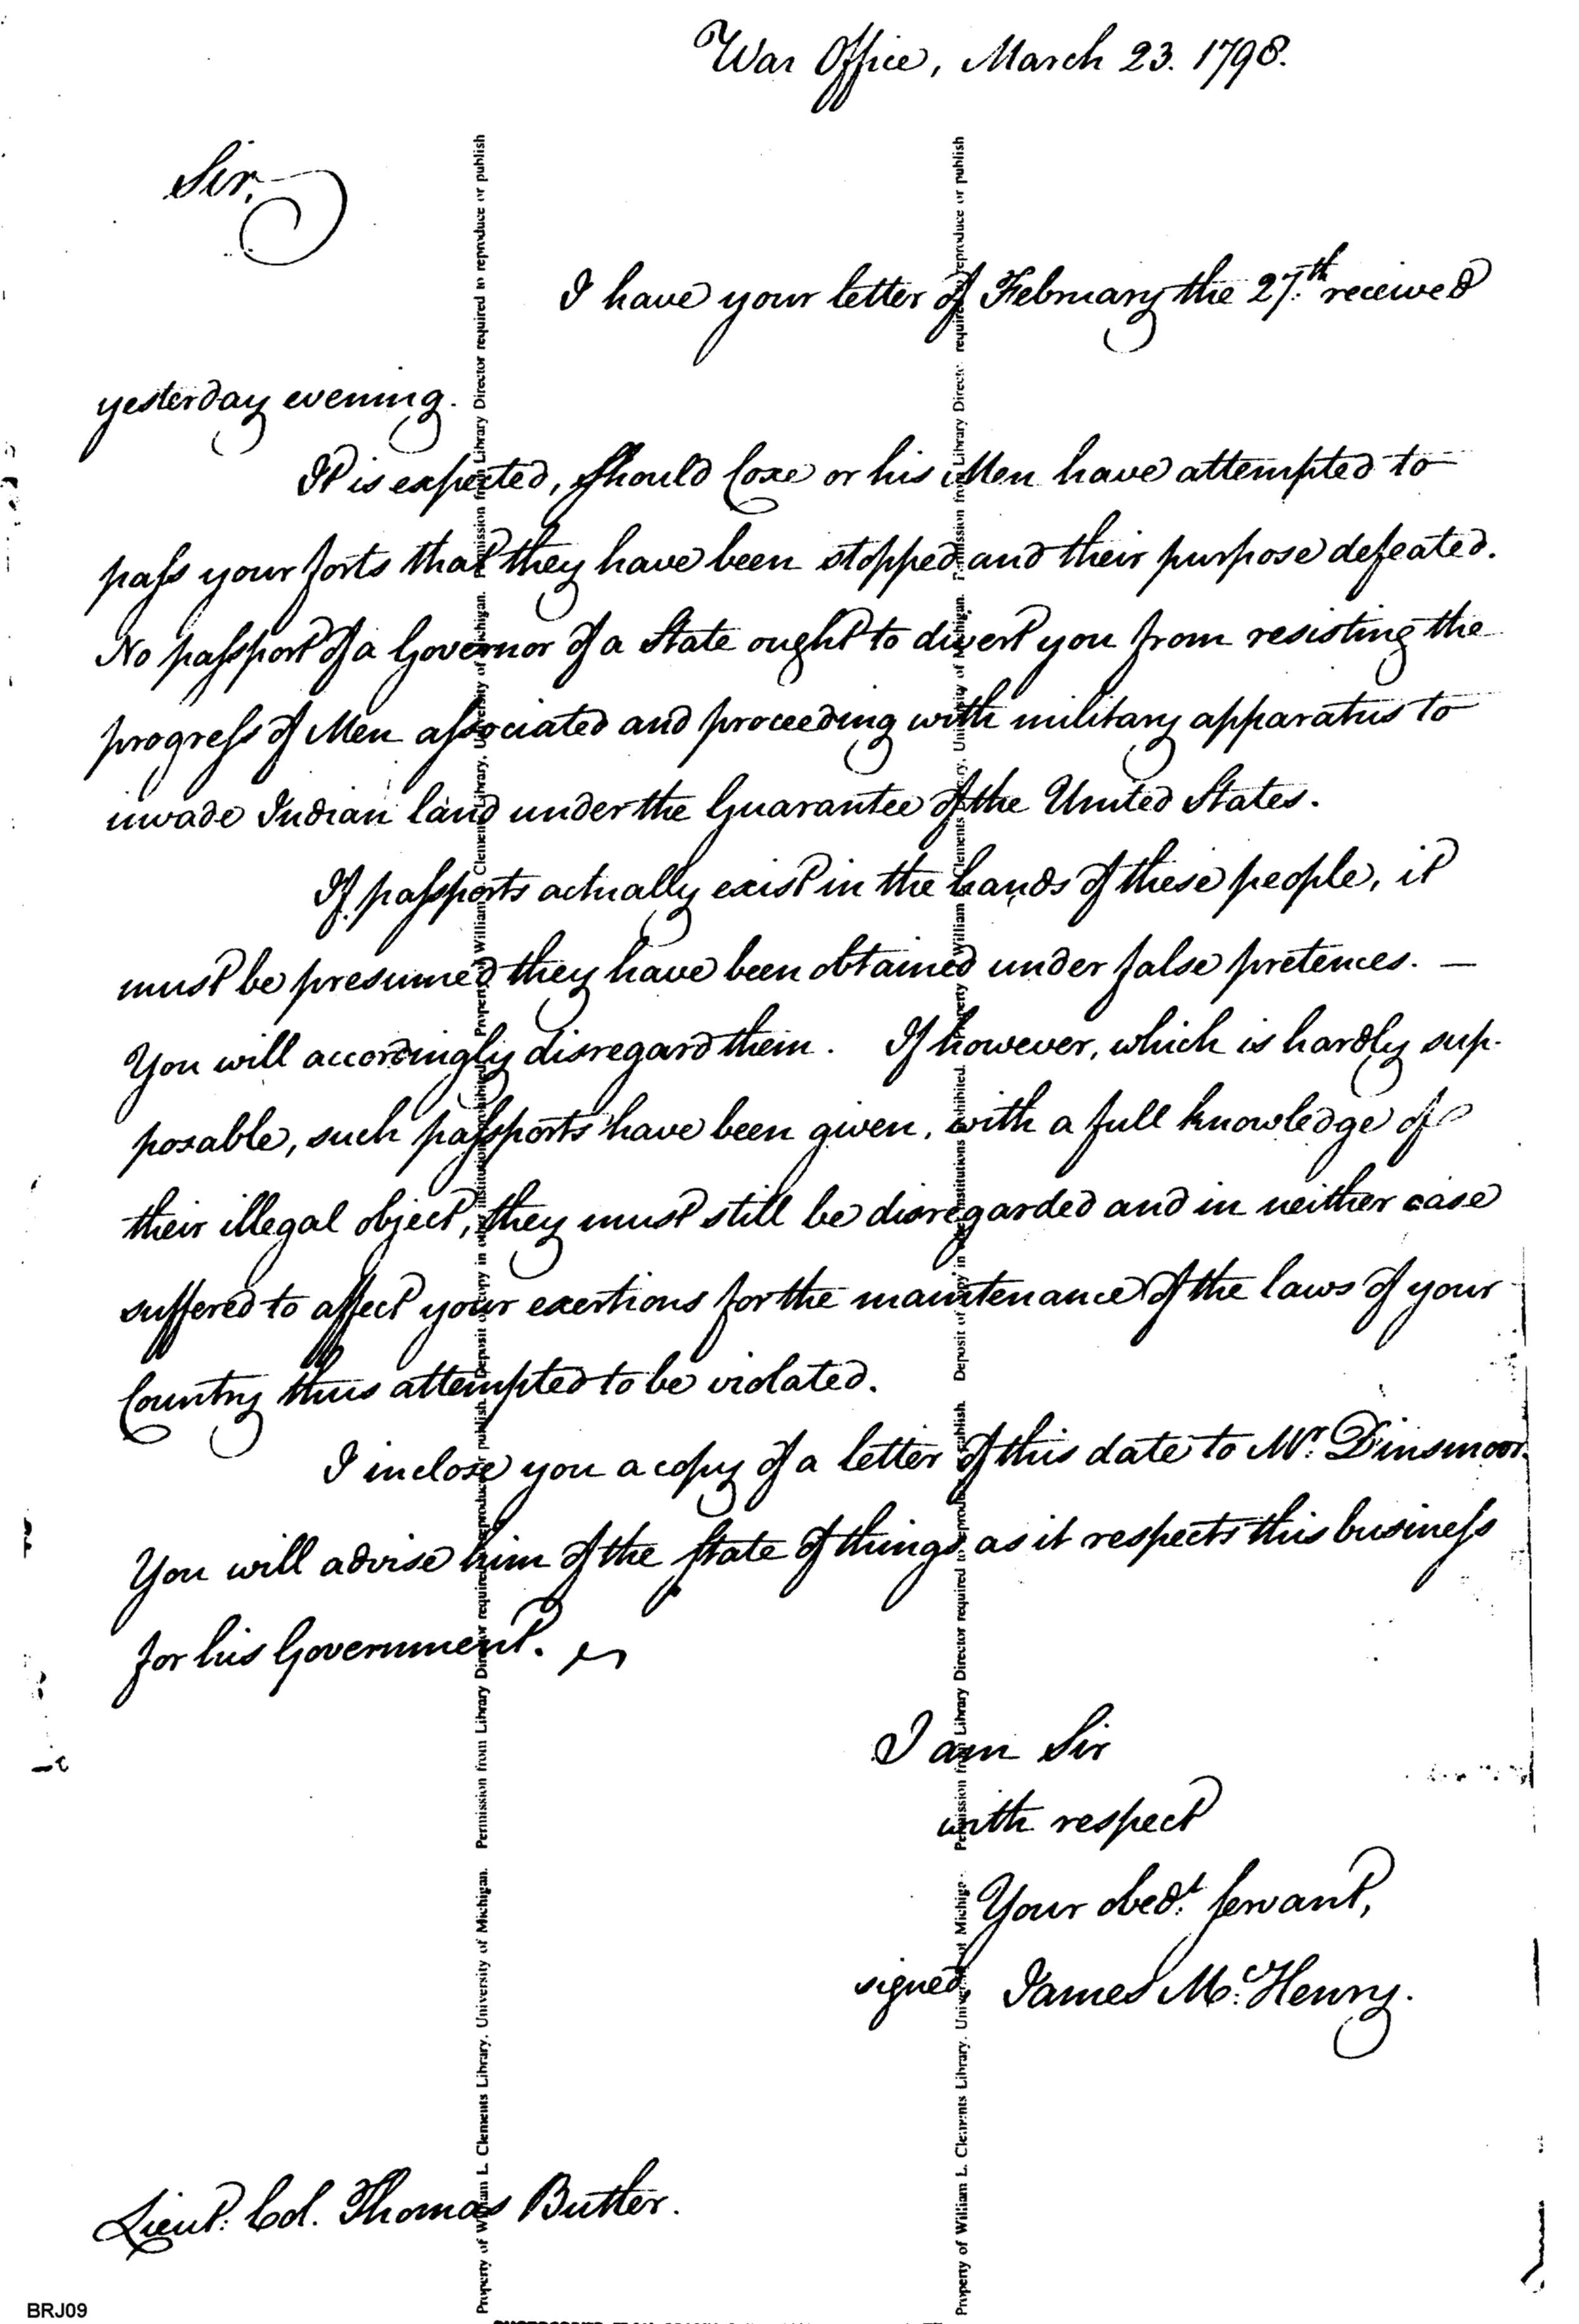 War Office, March 23. 1798.
Sir,
I have your letter of February the 27th. received
yesterday evening.
It is expected, should Coxe or his Men have attempted to
pass your forts that they have been stopped and their purpose defeated.
No passport of a Governor of a State ought to divert you from resisting the
progress of Men associated and proceeding with military apparatus to
invade Indian land under the Guarantee of the United States.
If passports actually exist in the hands of these people, it
must be presumed they have been obtained under false pretences. —
You will accordingly disregard them. If however, which is hardly sup-
posable, such passports have been given, with a full knowledge of
their illegal object, they must still be disregarded and in neither case
suffered to affect your exertions for the maintenance of the laws of your
Country thus attempted to be violated.
I inclose you a copy of a letter of this date to Mr. Dinsmoor.
You will advise him of the state of things as it respects this business
for his Government.
I am Sir
with respect
Your obedt. servant,
signed, James McHenry.
Lieut. Col. Thomas Butler.
Property of William L. Clements Library, University of Michigan. Permission from Library Director required to reproduce or publish. Deposit of copy in other institutions prohibited. Property of William L. Clements Library, University of Michigan. Permission from Library Director required to reproduce or publish
Property of William L. Clements Library, University of Michigan. Permission from Library Director required to reproduce or publish. Deposit of copy in other institutions prohibited. Property of William L. Clements Library, University of Michigan. Permission from Library Director required to reproduce or publish
BRJ09